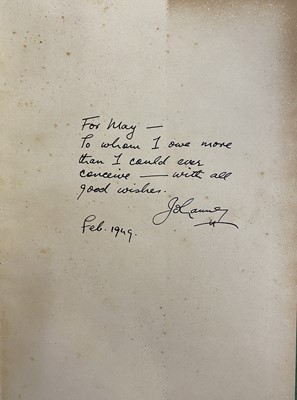 For May —
To whom I owe more
than I could ever
conceive — with all
good wishes.
Feb. 1949.